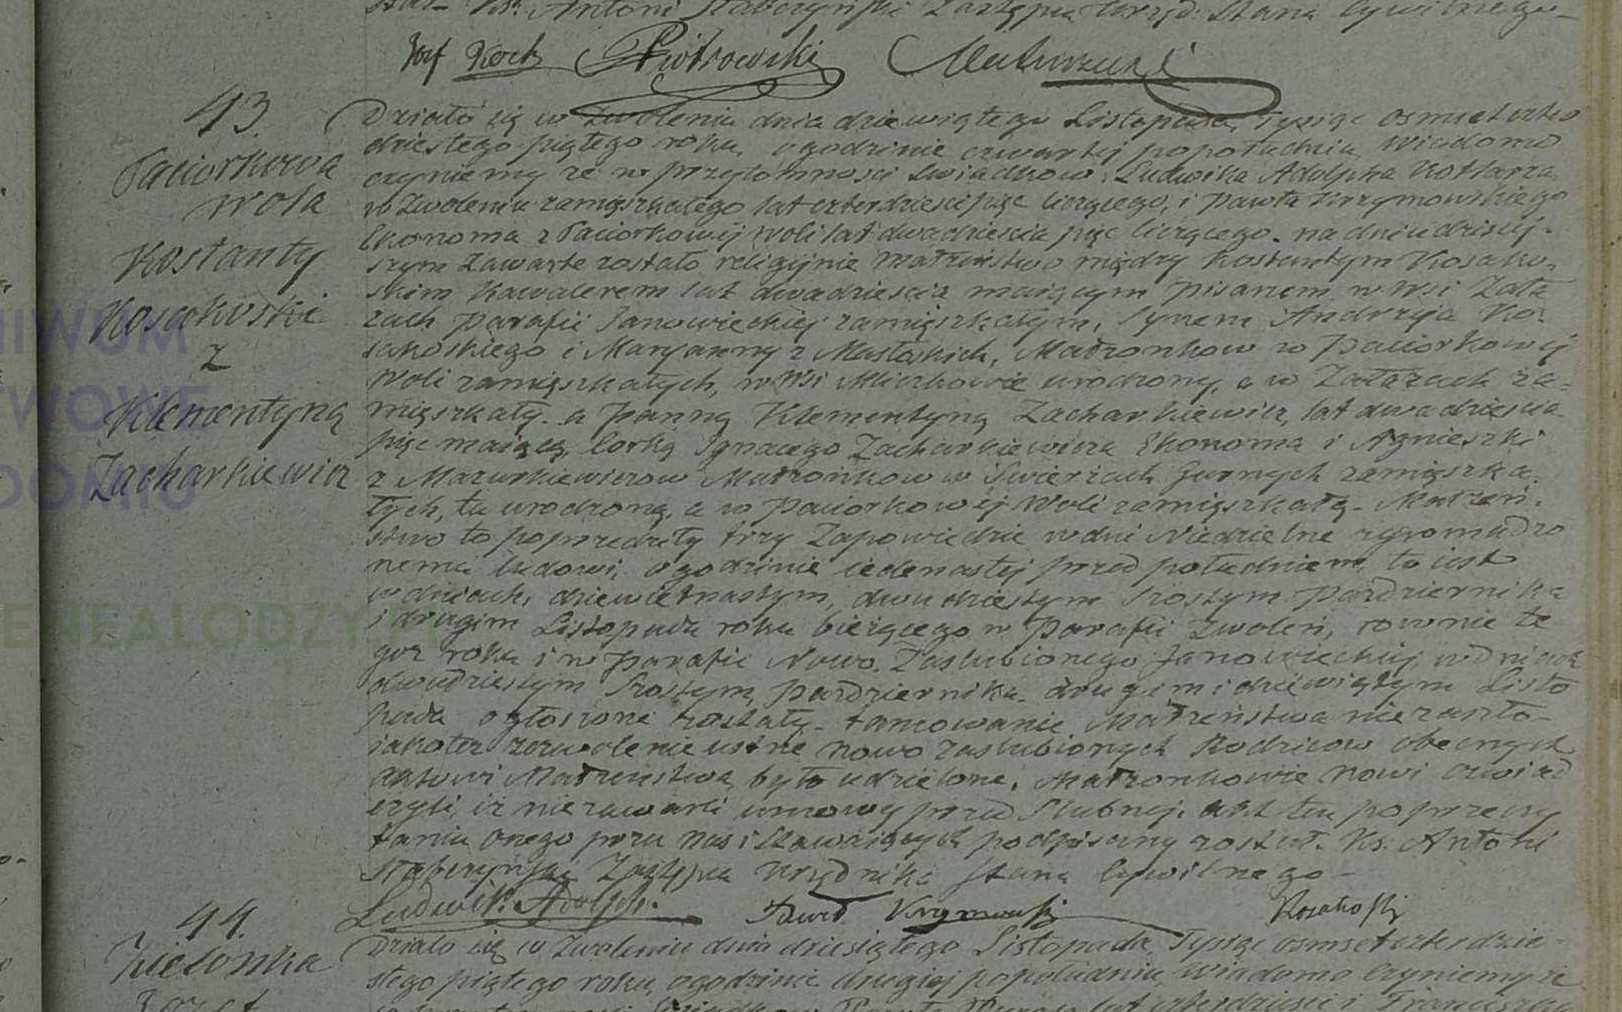 Ks. Antoni Staberzyński Zastępca Urzęd: Stanu Cywilnego
Jozf Kock Piotrowski
43.
Paciorkowa
wola
Kostanty
Kosakoski
z
Klementyną
Zacharkiewicz
Działo się w Zwoleniu dnia dziewiątego Listopada, Tysiąc osmset czter
dziestego piątego roku, o godzinie czwartej popołudniu, Wiadomo
czyniemy że w przytomności Swiadkow, Ludwika Adolpha Kotlarza
w Zwoleniu zamięszkałego lat czterdzieści pięć liczącego, i Pawła Krzymowskiego
Ekonoma z Paciorkowij Woli lat dwadzieścia pięć liczącego. na dniu dzisiej-
szym Zawarte zostało religijnie Małżeństwo między Kostantym Kosako-
skim Kawalerem lat dwadzieścia maiącym pisarzem w Wsi Zała
zach Parafii Janowieckiej zamięszkałym, Synem Andrzeja Ko-
sakoskiego i Maryanny z Masłoskich, Małżonkow w Paciorkowej
Woli zamięszkałych, w Wsi Mierzkowie urodzony, a w Załazach za-
mięszkały. a Panną Klementyną Zacharkiewicz, lat dwadzieścia
pięć maiącą, Corką Ignacego Zacharkiewicza Ekonoma i Agnieszki
z Mazurkiewiczow Małżonkow w Swierżach Gurnych zamięszka-
łych, tu urodzoną, a w Paciorkowej Woli zamięszkałą. Małżeń-
stwo to poprzedziły trzy Zapowiedzie w dni Niedzielne zgromadzo
nemu ludowi, o godzinie iedenastej przed południem, to iest
w dniach, dziewietnastym, dwudziestym szostym Pazdziernika
i drugim Listopada roku bieżącego w Parafii Zwoleń, rownie te
goz roku i w Parafii Nowo Zaslubionego Janowieckiej w dniach
dwudziestym szostym Pazdziernika. drugim i dziewiątym Listo
pada ogłoszone zostały. tamowanie Małżeństwa nie zaszło
iakoteż zezwolenie ustne nowo zaslubionych Rodzicow obecnych
aktowi Małżeństwa było udzielone. Małżonkowie nowi oswiad
czyli, iż nie zawarli umowy przed Slubnej. akt ten po przeczy
taniu onego przez nas i Stawaiących podpisany został. Ks. Antoni
Staberzyński Zastępca Urzędnika Stanu Cywilnego
Ludwik Adolph. Paweł Krzymowski Kosakoski
44.
Zielonka
Jozef
Działo się w Zwoleniu dnia dziesiątego Listopada, Tysiąc osmset czterdzie-
stego piątego roku, o godzinie drugiej popołudniu, Wiadomo Czyniemy że
NIWUM
TWOWE
DOMIU
ENEALODZY.PL